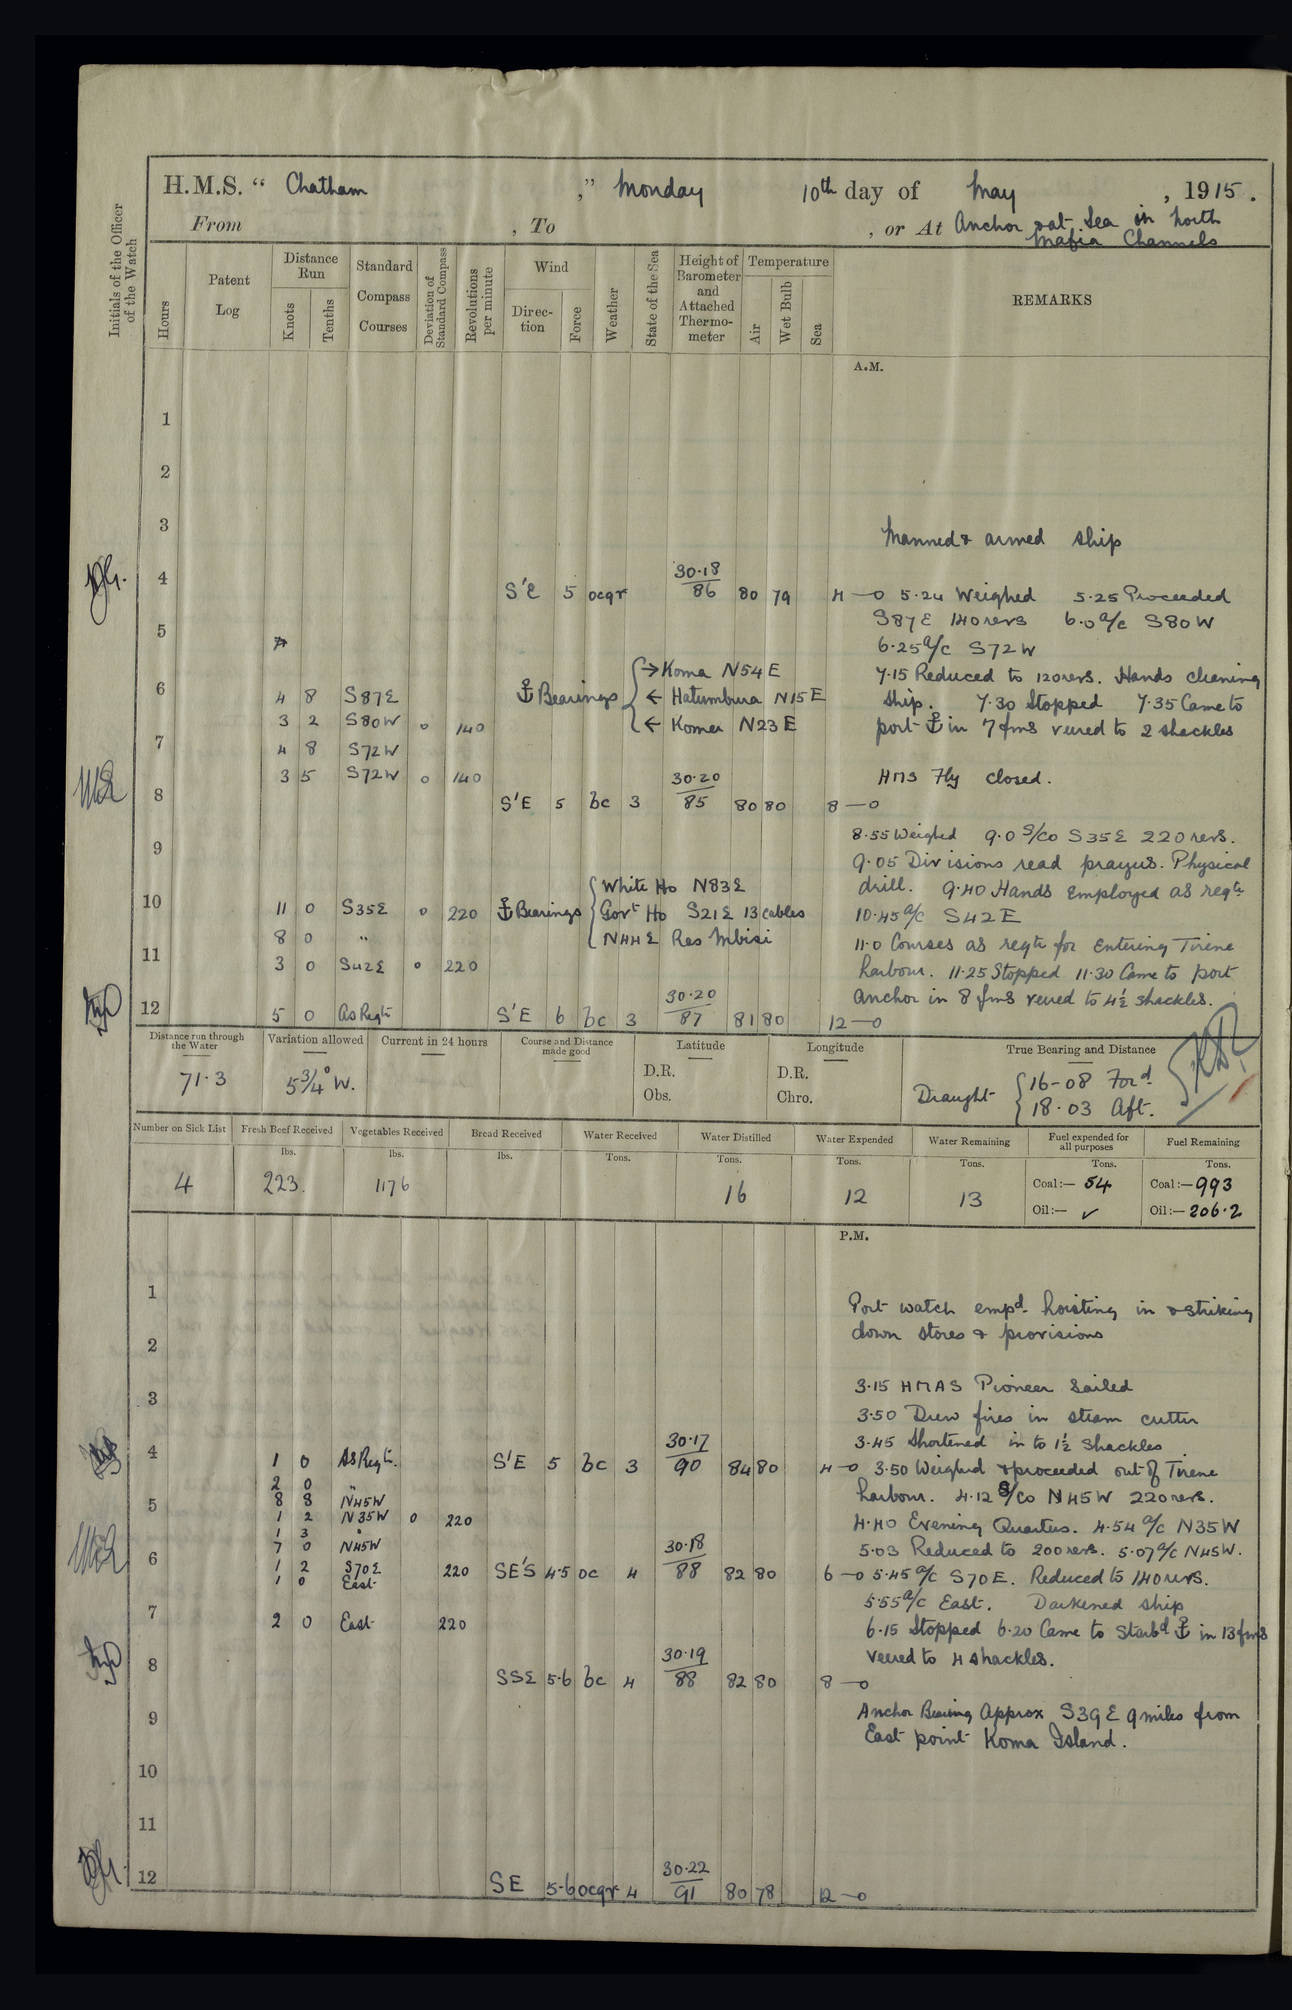 H.M.S. “ Chatham ,” Monday 10th day of May , 1915.
From , To , or At Anchor & at Sea in North
Mafia Channels
Initials of the Officer of the Watch
Hours
Patent Log
Distance Run
Knots
Tenths
Standard Compass Courses
Deviation of Standard Compass
Revolutions per minute
Wind
Direc-tion
Force
Weather
State of the Sea
Height of Barometer and Attached Thermo-meter
Temperature
Air
Wet Bulb
Sea
REMARKS
A.M.
1
2
3
Manned & armed ship
4 S'E 5 ocqr 30·18/86 80 79 4—0 5·24 Weighed 5·25 Proceeded
S87E 140 revs 6·0 a/c S80W
5
6·25 a/c S72W
→ Koma N54E 7·15 Reduced to 120 revs. Hands cleaning
6 4 8 S87E ⚓ Bearings ← Hatumbura N15E ship. 7·30 Stopped 7·35 Came to
3 2 S80W 0 140 ← Komer N23E port ⚓ in 7 fms veered to 2 shackles
7 4 8 S72W
3 5 S72W 0 140 HMS Fly closed.
8 S'E 5 bc 3 30·20/85 80 80 8—0
8·55 Weighed 9·0 S/Co S35E 220 revs.
9 9·05 Divisions read prayers. Physical
White Ho N83E drill. 9·40 Hands Employed as reqte
10 11 0 S35E 0 220 ⚓ Bearings Govt Ho S21E 13 cables 10·45 a/c S42E
8 0 " N44E Ras Mbisi 11·0 Courses as reqte for Entering Tirene
11 3 0 S42E 0 220 harbour. 11·25 Stopped 11·30 Came to port
12 5 0 As Reqte S'E 6 bc 3 30·20/87 81 80 anchor in 8 fms veered to 4½ shackles.
12—0
Distance run through the Water
Variation allowed
Current in 24 hours
Course and Distance made good
Latitude
Longitude
True Bearing and Distance
71·3 5¾° W. D.R. D.R. Draught 16-08 Ford
Obs. Chro. 18·03 Aft.
Number on Sick List
Fresh Beef Received
Vegetables Received
Bread Received
Water Received
Water Distilled
Water Expended
Water Remaining
Fuel expended for all purposes
Fuel Remaining
lbs. lbs. lbs. Tons. Tons. Tons. Tons. Tons. Tons.
4 223. 1176 16 12 13 Coal:— 54 Coal:—993
Oil:— ✓ Oil:—206·2
P.M.
1 Port watch empd. hoisting in & striking
2 down stores & provisions
3 3·15 HMAS Pioneer Sailed
3·50 Drew fires in steam cutter
3·45 Shortened in to 1½ Shackles
4 1 0 As Reqte. S'E 5 bc 3 30·17/90 84 80 4—0 3·50 Weighed & proceeded out of Tirene
2 0 " harbour. 4·12 S/Co N45W 220 revs.
5 8 8 N45W
1 2 N35W 0 220 4·40 Evening Quarters. 4·54 a/c N35W
1 3 "
7 0 N45W 5·03 Reduced to 200 revs. 5·07 a/c N45W.
6 1 2 S70E 220 SE'S 4·5 oc 4 30·18/88 82 80 6—0 5·45 a/c S70E. Reduced to 140 revs.
1 0 East
5·55 a/c East. Darkened ship
7 2 0 East 220 6·15 Stopped 6·20 Came to Starbd ⚓ in 13 fms
veered to 4 shackles.
8 SSE 5·6 bc 4 30·19/88 82 80 8—0
9 Anchor Bearing Approx S39E 9 miles from
East point Koma Island.
10
11
12 SE 5·6 ocqr 4 30·22/91 80 78 12—0